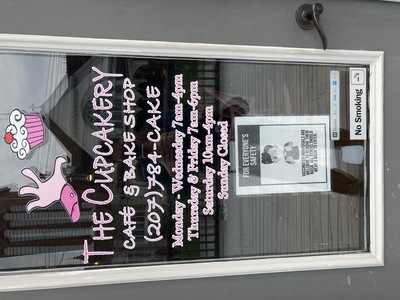 THE CUPCAKERY
CAFÉ & BAKE SHOP
(207) 784-CAKE
Monday - Wednesday 7am-4pm
Thursday & Friday 7am-6pm
Saturday 10am-4pm
Sunday Closed
FOR EVERYONE'S
SAFETY
No Smoking